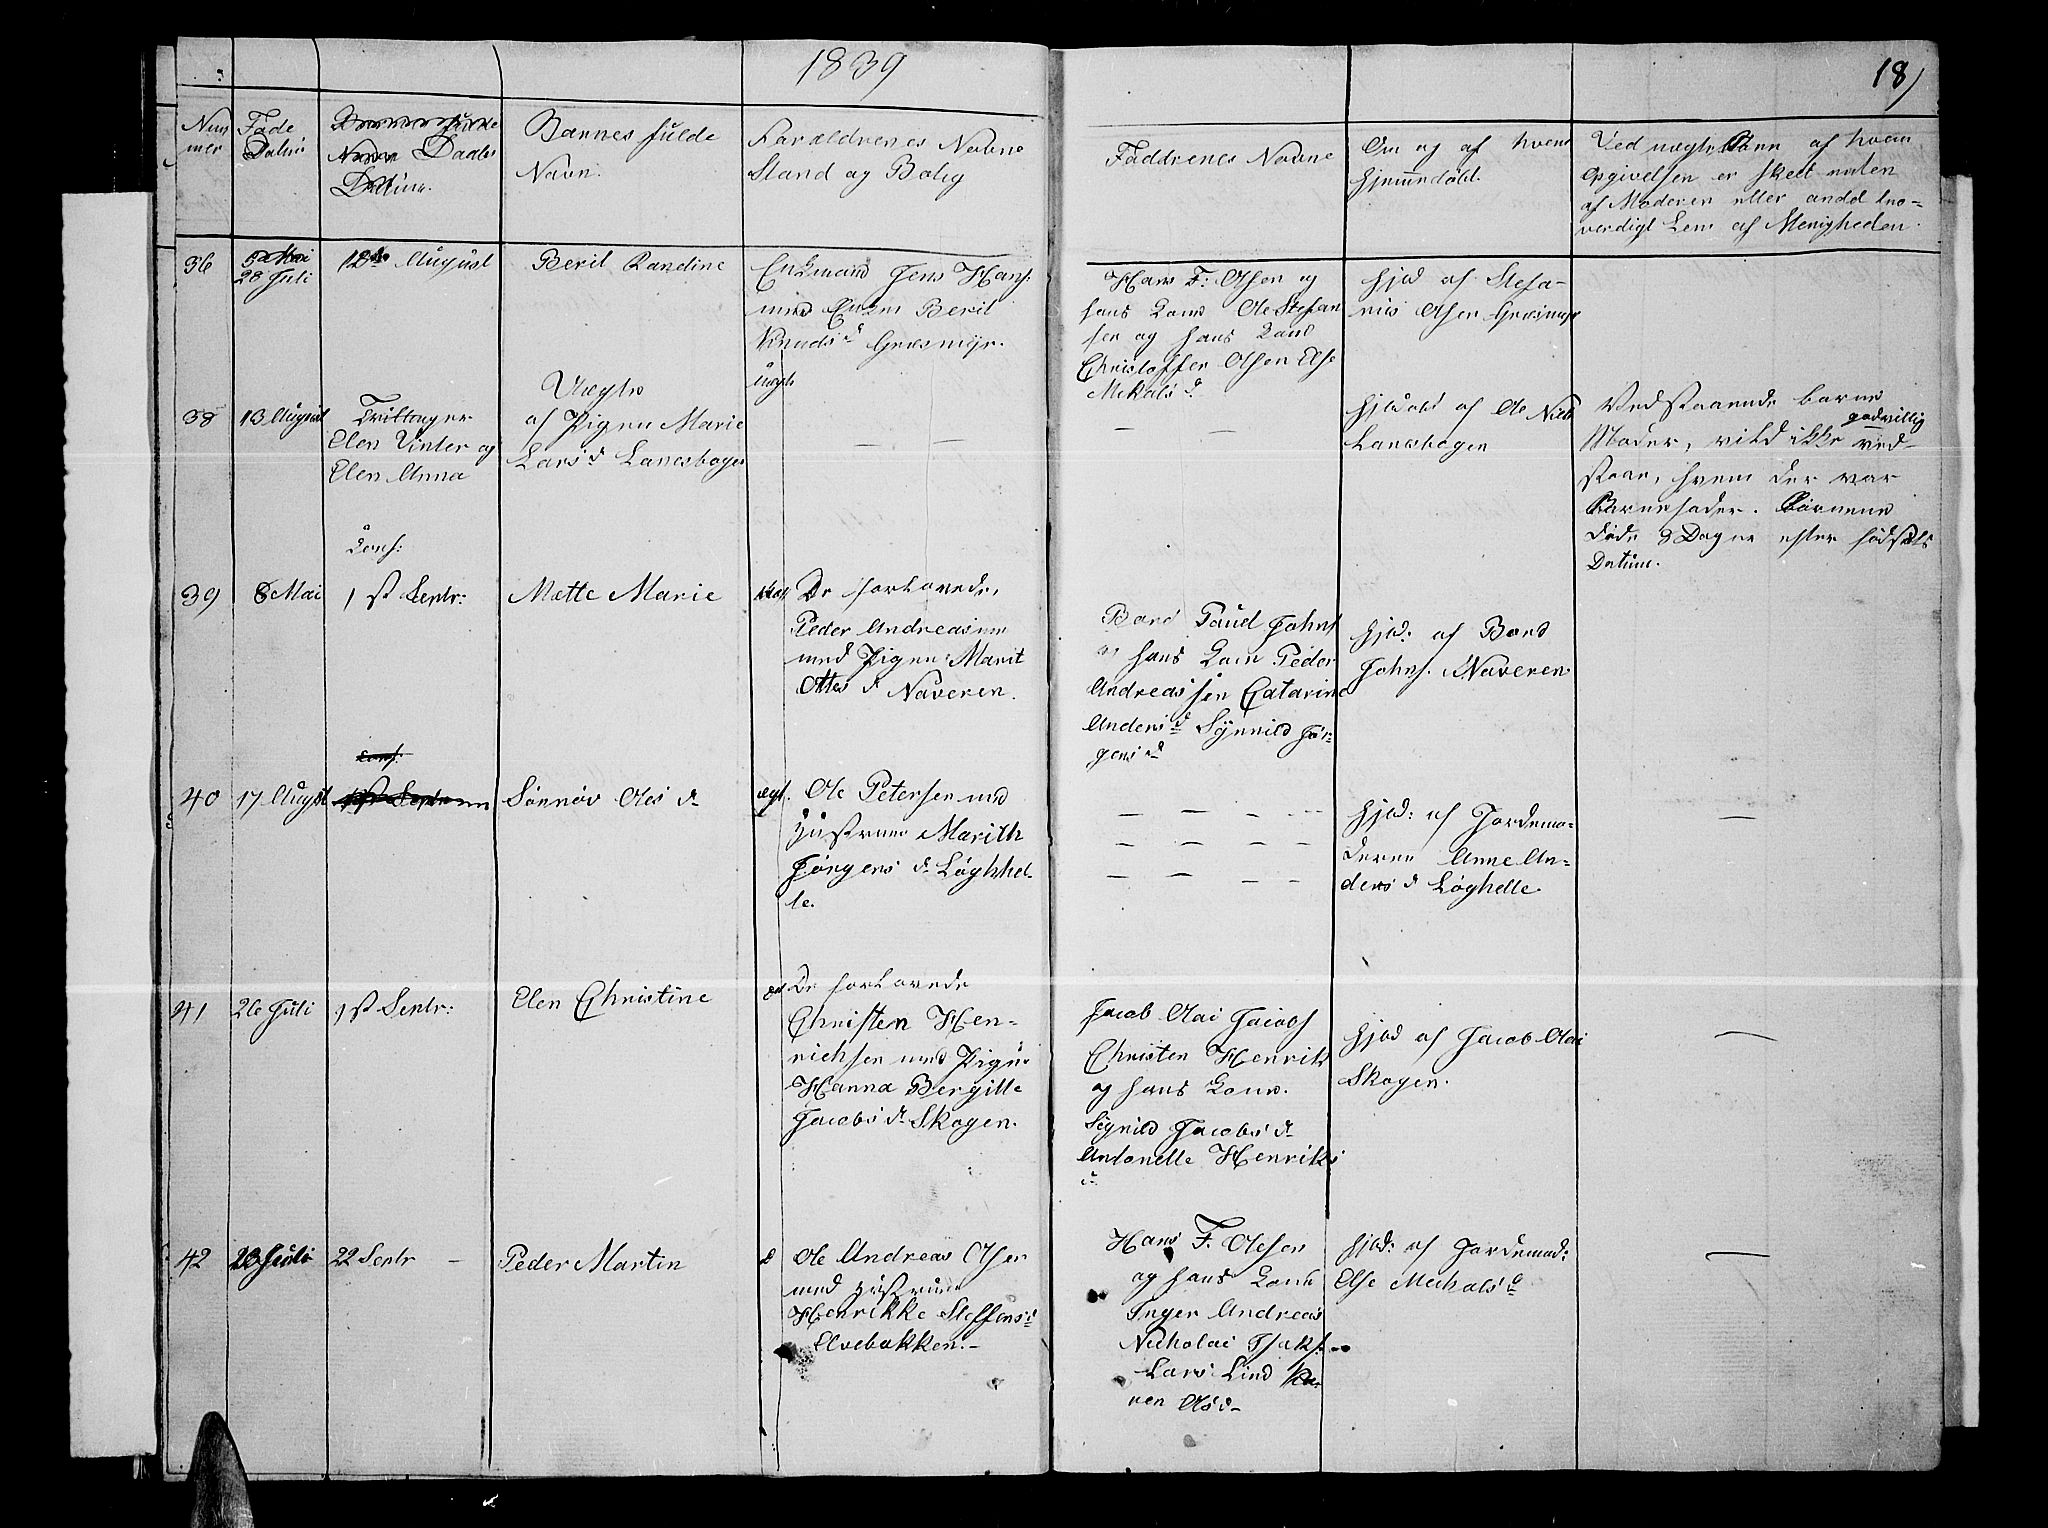 1839
18
Num
mer
Føde
Datum
Daabs
Datum.
Barnes fulde
Navn.
Foræld­renes Navne
Stand og Bolig
Faddrenes Navne
Om og af hvem
hjemmedøbt.
Ved uægte Børn af hvem
opgivelsen er skeet enten
af Moderen eller andet tro=
verdigt Lem af Menigheden.
36
28 Juli
12te August
Berit Randine
Enkemand Jens Hans:
med Enken Berit
Knuds d Græsmyr.
Hans F: Olsen og
hans Kone Ole Stefan
sen og hans Kone
Christoffer Olsen Else
Mikals d
hjed af Stefa-
nus Olsen Græsmyr
38
13 August
Tvillinger
Elen Vinter og
Elen Anna
Uægte
af Pigen Marie
Lars d Lanesbogen
uægte
— —
— —
hjedøbt af Ole Niels
Lanesbogen
Vedstaaende barns
Moder, vild ikke godvillig ved-
staae, hvem der var
Barnefader. Børnene
døde 8 Dage efter fødsels
Datum.
39
8 Mai
Conf:
1 st Septr:
Mette Marie
De forlovede,
Peder Andreassen
med Pigen: Marit
Ottes d Naveren.
Bard Poul Johns
og hans Kone Peder
Andreassen Catarine
Anders d Synnild Jør-
gens d
hjed: af Bard
Johns. Naveren
40
17 August
Sønnøv Oles d
ægt.
Ole Petersen med
Hustrue Marith
Jørgens d Løghhel-
le.
— — — —
— — — —
— — — —
hjed: af Jordemo-
deren Anne An-
ders d Løghelle.
—
41
26 Juli
1 st Septr:
Elen Christine
De forlovede
Christen Hen-
richsen med Pigen
Hanna Bergitte
Jacobs d Skogen.
Jacob Olai Jacobs
Christen Henriks
og hans Kone.
Signild Jacobs d
Antonette Henriks
d
hjed af Jacob Olai
Skogen.
—
42
23 Juli
22 Septr —
Peder Martin
Ole Andreas Olsen
med Hustrue
Henrikke Steffens d
Elvebakken.—
Hans F. Olesen
og hans Kone
Inger Andreas
Nicholai Isaks:
Lars Lind Ka-
ren Ols d
hjed: af Jordemod:
Else Michals d
—